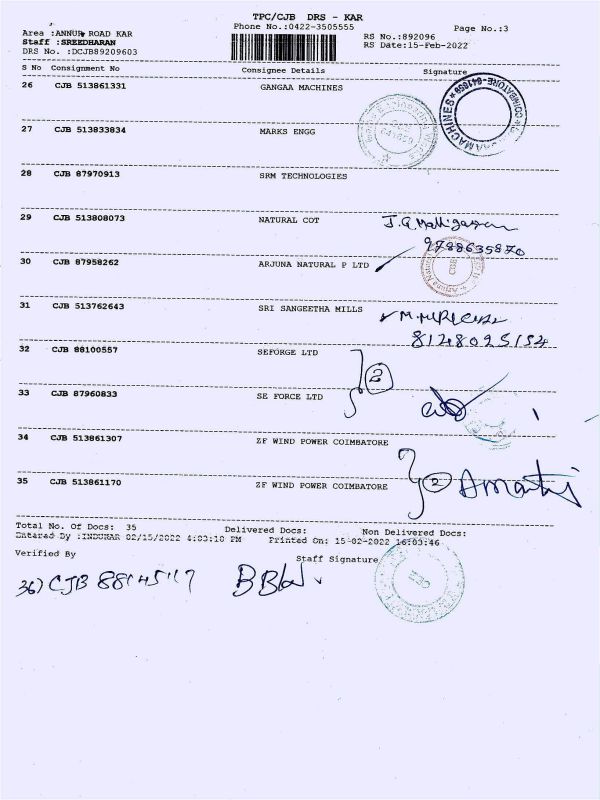 TPC/CJB DRS - KAR
Phone No.:0422-3505555
Page No.:3
Area :ANNUR ROAD KAR
Staff :SREEDHARAN
DRS No. :DCJB89209603
RS No.:892096
RS Date:15-Feb-2022
S No Consignment No Consignee Details Signature
26 CJB 513861331 GANGAA MACHINES
27 CJB 513833834 MARKS ENGG
28 CJB 87970913 SRM TECHNOLOGIES
29 CJB 513808073 NATURAL COT
9788635870
30 CJB 87958262 ARJUNA NATURAL P LTD
31 CJB 513762643 SRI SANGEETHA MILLS
8128025154
32 CJB 88100557 SEFORGE LTD
2
33 CJB 87960833 SE FORCE LTD
34 CJB 513861307 ZF WIND POWER COIMBATORE
2
35 CJB 513861170 ZF WIND POWER COIMBATORE
Total No. Of Docs: 35 Delivered Docs: Non Delivered Docs:
Entered By :INDUKAR 02/15/2022 4:03:10 PM Printed On: 15-02-2022 16:03:46
Verified By Staff Signature
36) CJB